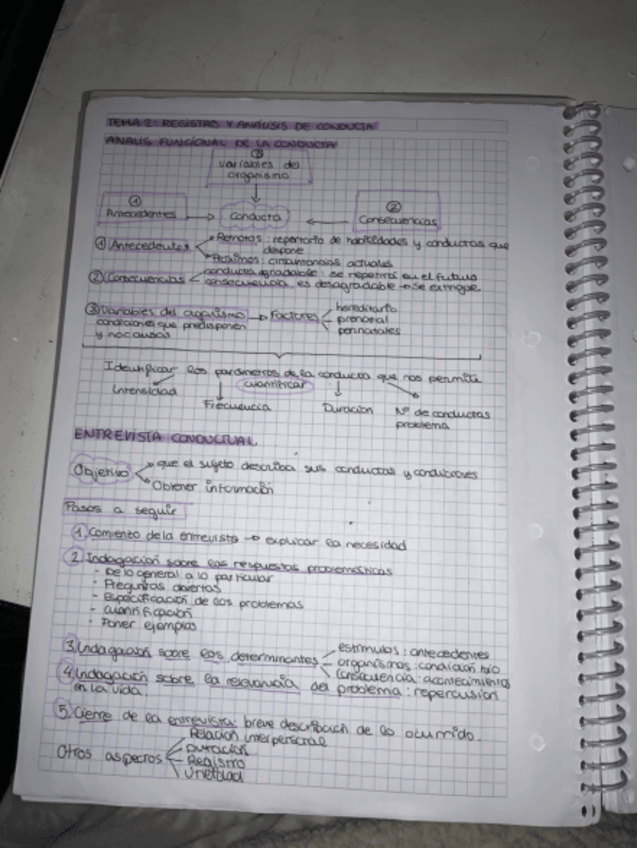 TEMA 2: REGISTRO Y ANÁLISIS DE CONDUCTA
ANALIS FUNCIONAL DE LA CONDUCTA
③
Variables del
organismo
①
Antecedentes
Conducta
②
Consecuencias
① Antecedentes
Remotos: repertorio de habilidades y conductas que
dispone
Próximos: circunstancias actuales
② Consecuencias
conducta agradable: se repetirá en el futuro
consecuencia es desagradable → se extingue
③ Variables del organismo → Factores
hereditario
prenatal
perinatales
condiciones que predisponen
y no causas
Identificar los parámetros de la conducta que nos permita
cuantificar
Intensidad
Frecuencia
Duración
Nº de conductas
problema
ENTREVISTA CONDUCTUAL
Objetivo
que el sujeto describa sus conductas y condiciones
Obtener información
Pasos a seguir
① Comienzo de la entrevista → explicar la necesidad
② Indagación sobre las respuestas problemáticas
- De lo general a lo particular
- Preguntas abiertas
- Especificación de los problemas
- Cuantificación
- Poner ejemplos
③ Indagación sobre los determinantes
estímulos: antecedentes
organismos: condición bio
consecuencia: acontecimientos
④ Indagación sobre la relevancia del problema: repercusión
en la vida.
⑤ Cierre de la entrevista: breve descripción de lo ocurrido.
Otros aspectos
Relación interpersonal
Duración
Registro
Utilidad